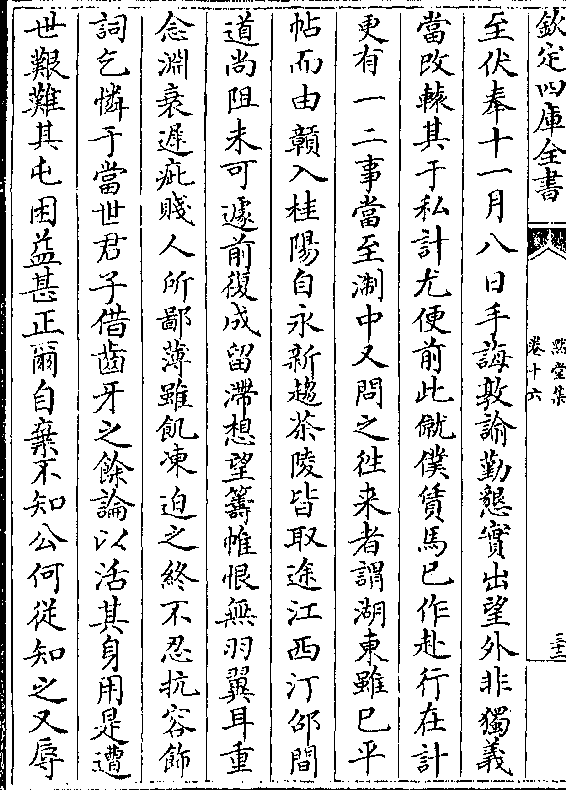 欽定四庫全書
默堂集
卷十六
至伏奉十一月八日手誨敦諭勤懇實出望外非獨義
當改轅其于私計尤便前此僦僕賃馬已作赴行在計
更有一二事當至淛中又問之徃来者謂湖東雖已平
帖而由贑入桂陽自永新趨茶陵皆取途江西汀邵間
道尚阻未可遽前復成留滯想望籌帷恨無羽翼耳重
念淵衰遲疵賤人所鄙薄雖飢凍迫之終不忍抗容飾
詞乞憐于當世君子借齒牙之餘論以活其身用是遭
世艱難其屯困益甚正爾自棄不知公何從知之又辱